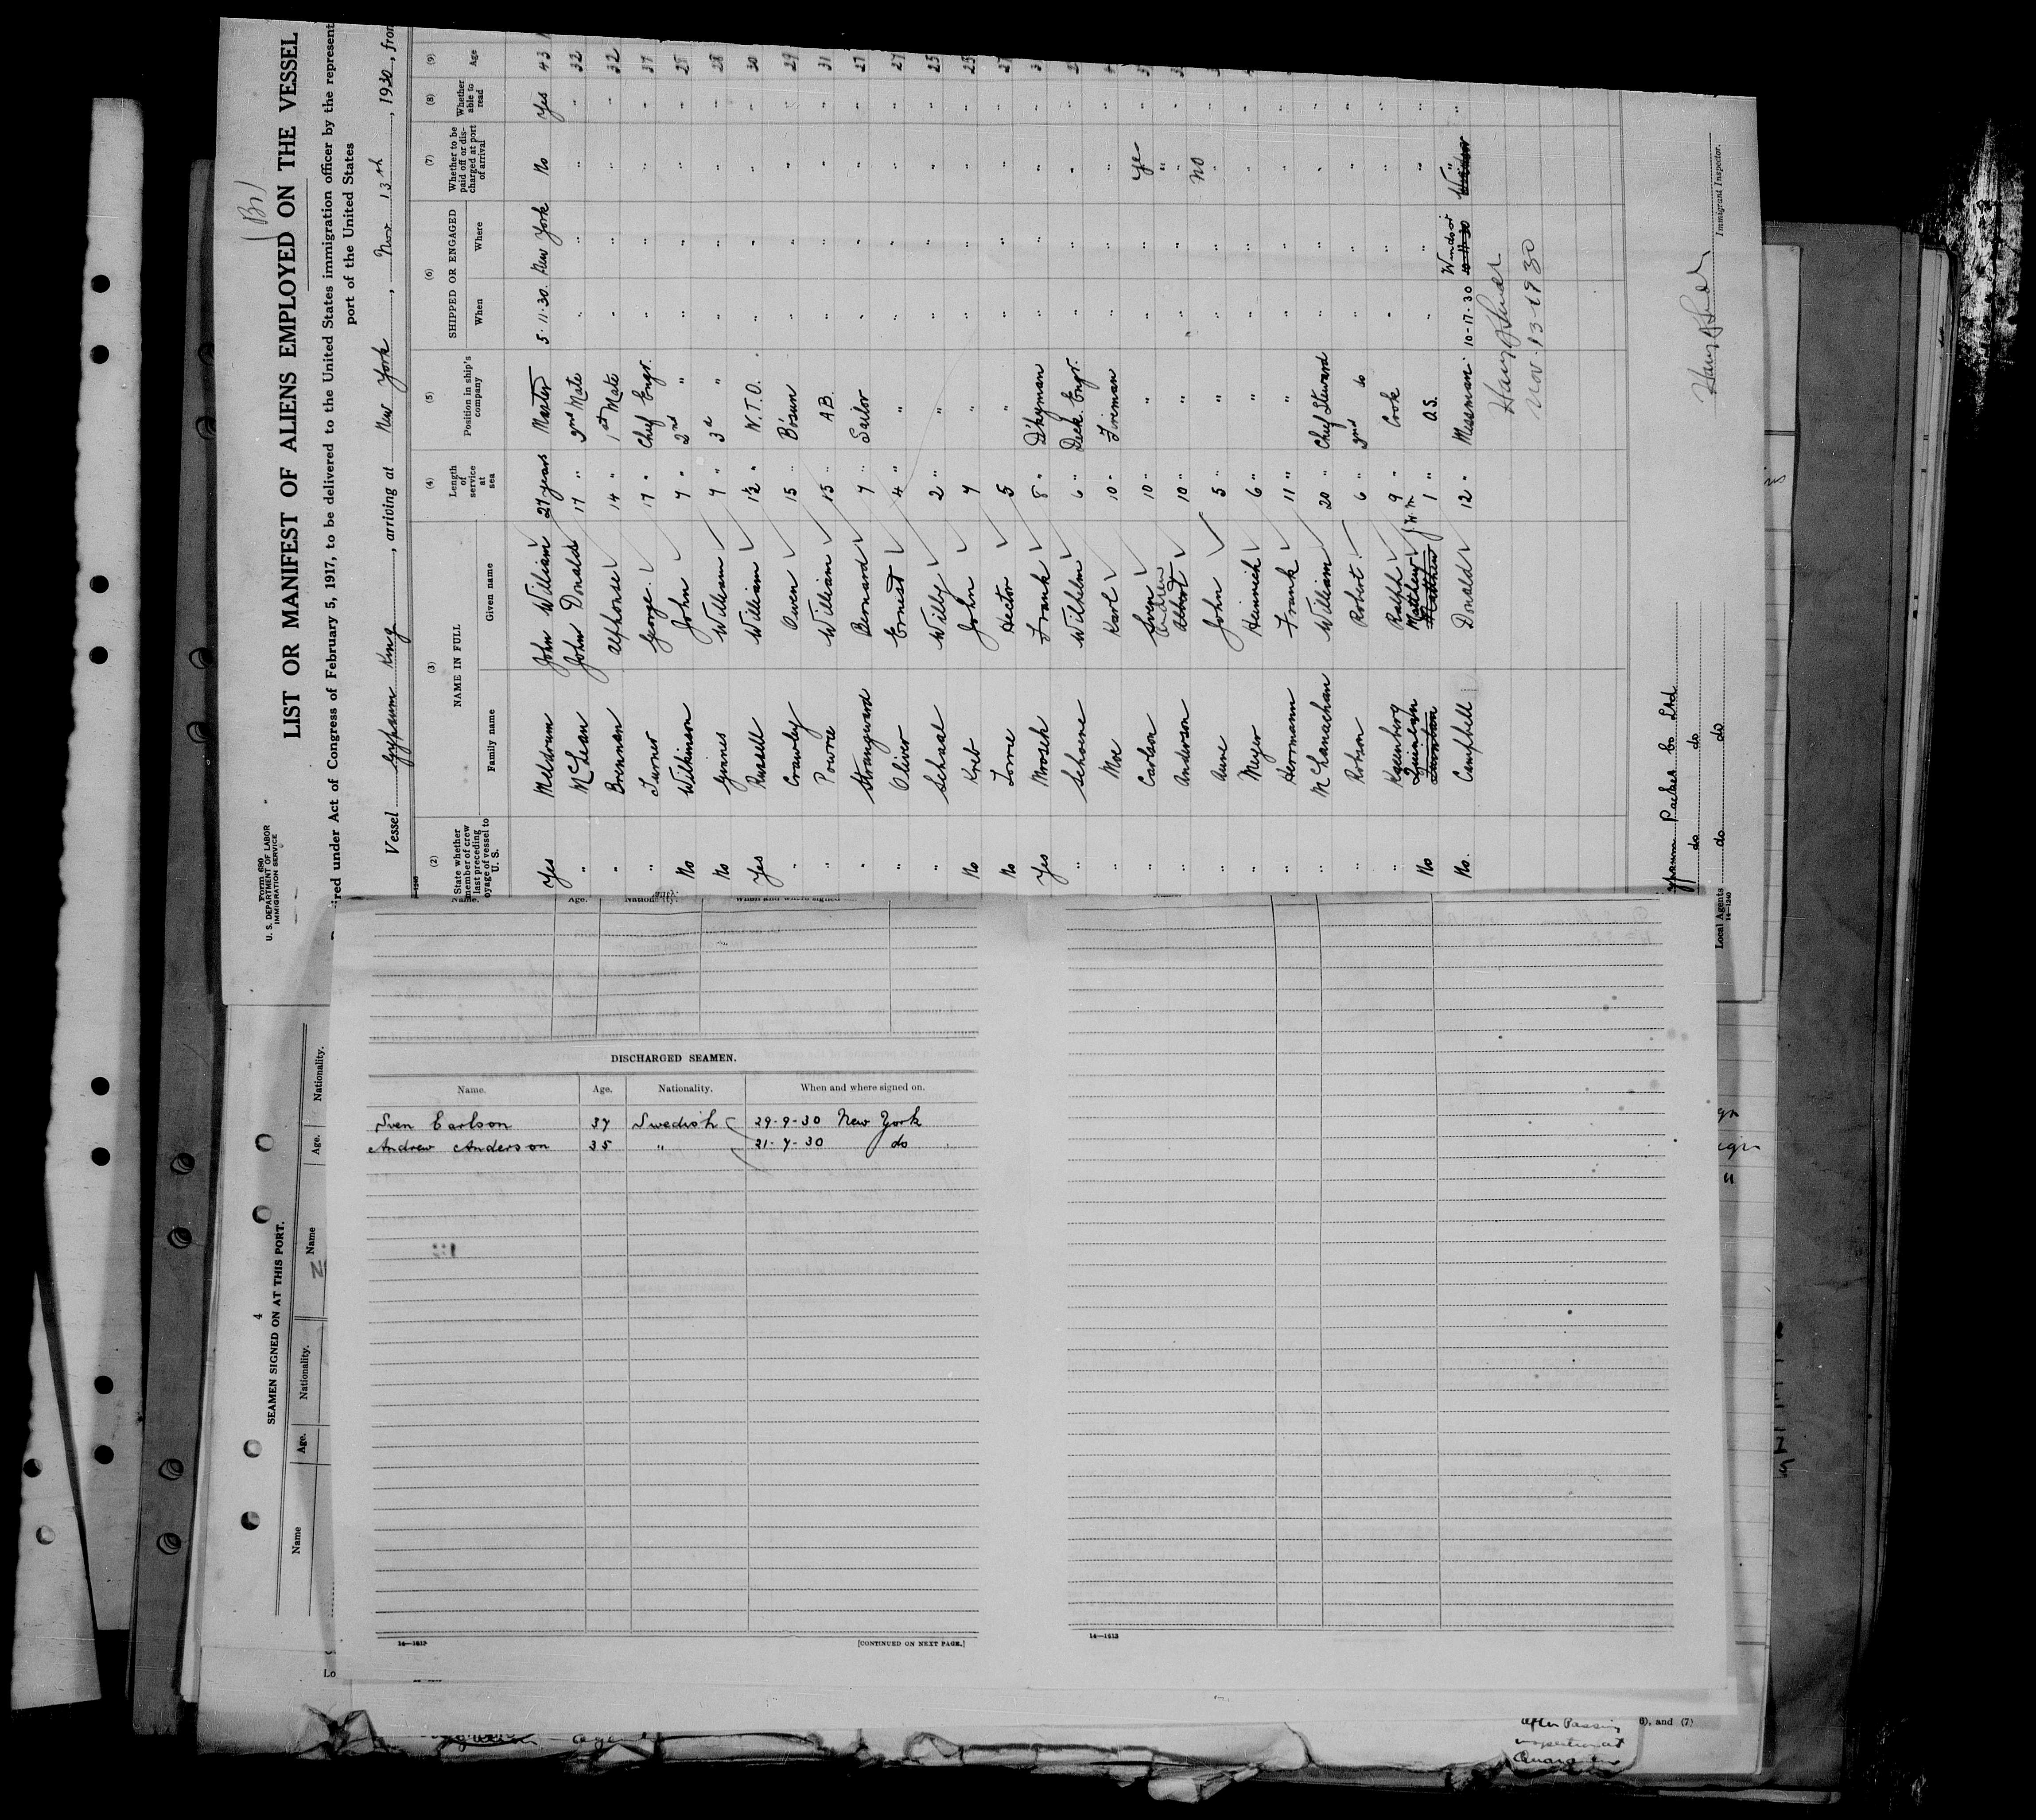 Form 680
U. S. DEPARTMENT OF LABOR
IMMIGRATION SERVICE
(Br)
LIST OR MANIFEST OF ALIENS EMPLOYED ON THE VESSEL
ired under Act of Congress of February 5, 1917, to be delivered to the United States immigration officer by the represent
port of the United States
Vessel Gypsum King, arriving at New York, Nov 13th, 1930, from
(2) (3) (4) (5) (6) (7) (8) (9)
State whether member of crew last preceding oyage of vessel to U. S. NAME IN FULL Family name Given name Length of service at sea Position in ship's company SHIPPED OR ENGAGED When Where Whether to be paid off or discharged at port of arrival Whether able to read Age
Yes Meldrum John William 27 years Master 5-11-30. New York No Yes 43
" McLean John Donald 17 " 2nd Mate " " " " 32
" Brennan Alphonse 14 " 1st Mate " " " " 32
" Turner George 17 " Chief Engr. " " " " 37
No Wilkinson John 7 " 2nd " " " " " 25
No Ginnes William 9 " 3d " " " " " 28
Yes Russell William 1½ " W.T.O. " " " " 30
" Crawley Owen 15 " Bosun " " " " 29
" Powrie William 15 " A.B. " " " " 31
" Strangward Bernard 7 " Sailor " " " " 27
" Oliver Ernest 4 " " " " " " 27
" Schaal Willy 2 " " " " " " 25
No Kreb John 7 " " " " " 25
No Lorrie Hector 5 " " " " "
Yes Mrosek Frank 8 " D'keyman " " " "
" Schoene Wilhelm 6 " Deck Engr. " " " "
" Moe Karl 10 " Fireman " " " "
" Carlson Sven 10 " " " " Ye "
" Anderson Andrew Albert 10 " " " " " "
" Aune John 5 " " " " No "
" Meyer Heinrich 6 " " " " " "
" Hermann Frank 11 " " " " " "
" McClanachan William 20 " Chief Steward " " " "
" Robson Robert 6 " 2nd do " " " "
" Kaenberg Ralph 9 " Cook " " " "
No Quinlan Matthew J.W.M. 1 " O.S. " " " "
No. Campbell Donald 12 " Messman 10-17-30 Windsor "
Nov. 13-1930
Gypsum Packet Co Ltd
do do
Local Agents do do
14—1240
Immigrant Inspector.
Name. Age. When and where signed
DISCHARGED SEAMEN.
Name. Age. Nationality. When and where signed on.
Sven Carlson 37 Swedish 29-9-30 New York
Andrew Anderson 35 " 21-7-30 do
14—1613
[CONTINUED ON NEXT PAGE.]
14—1613
4
SEAMEN SIGNED ON AT THIS PORT.
Name Age. Nationality. Name Age. Nationality.
Lo
6), and (7)
after Passing
inspection at